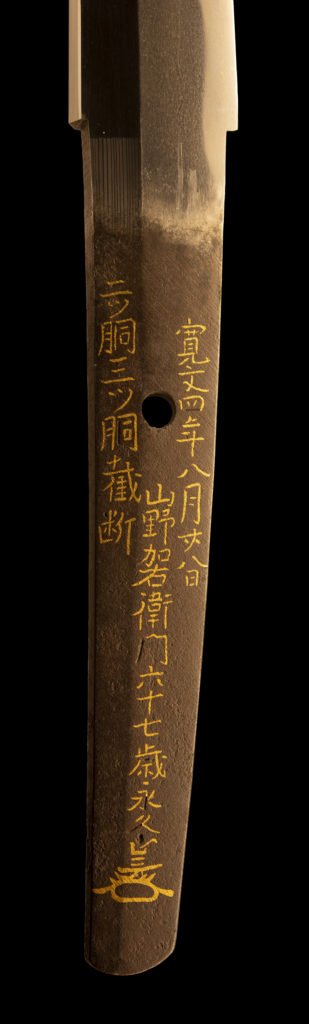 寛文四年八月八日
山野加右衛門六十七歳永久
二ツ胴三ツ胴截断